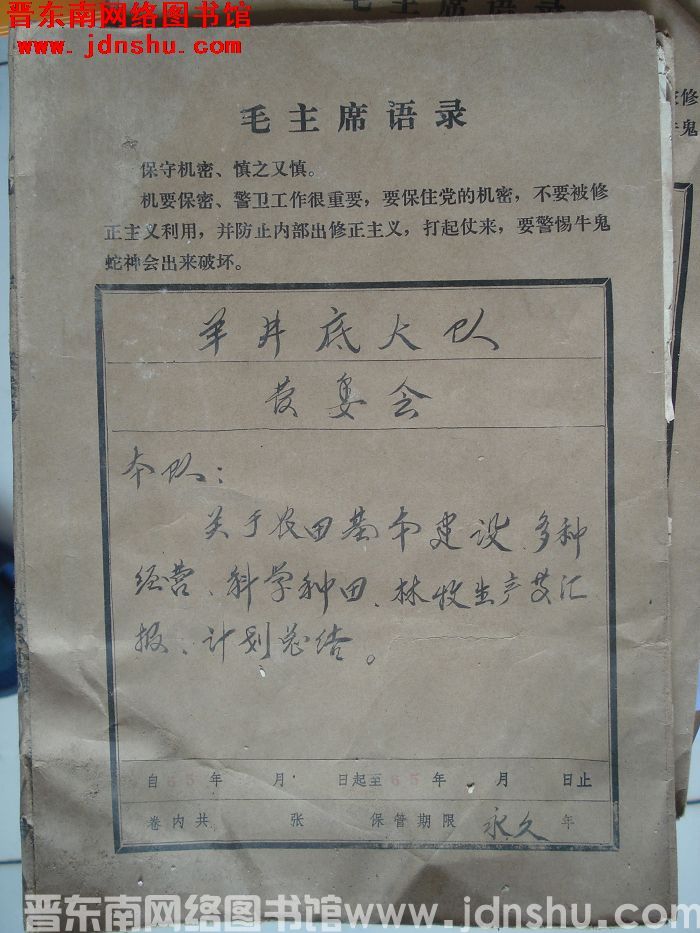 晋东南网络图书馆
www.jdnshu.com
毛主席语录
毛主席语录
保守机密、慎之又慎。
机要保密、警卫工作很重要，要保住党的机密，不要被修
正主义利用，并防止内部出修正主义，打起仗来，要警惕牛鬼
蛇神会出来破坏。
羊井底大队
党委会
本队：
关于农田基本建设、多种
经营、科学种田、林牧生产 汇
报、计划总结。
自 年 月 日起至65年 月 日止
卷内共 张 保管期限 永久 年
晋东南网络图书馆 www.jdnshu.com